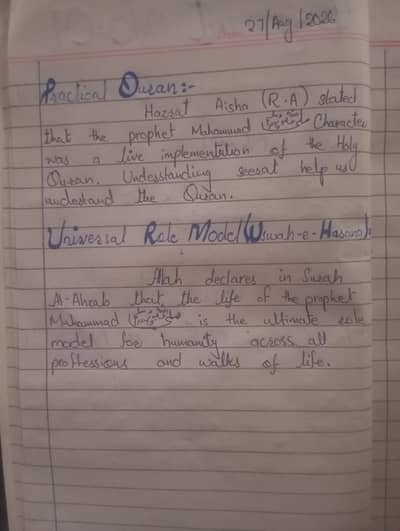 27/Aug/2026
Practical Quran:-
Hazrat Aisha (R.A) stated
that the prophet Mohammad ﷺ Character
was a live implementation of the Holy
Quran. Understanding seerat help us
understand the Quran.
Universal Role Model (Uswah-e-Hasana):
Allah declares in Surah
Al-Ahzab that the life of the prophet
Muhammad ﷺ is the ultimate role
model for humanity across all
proffessions and walks of life.